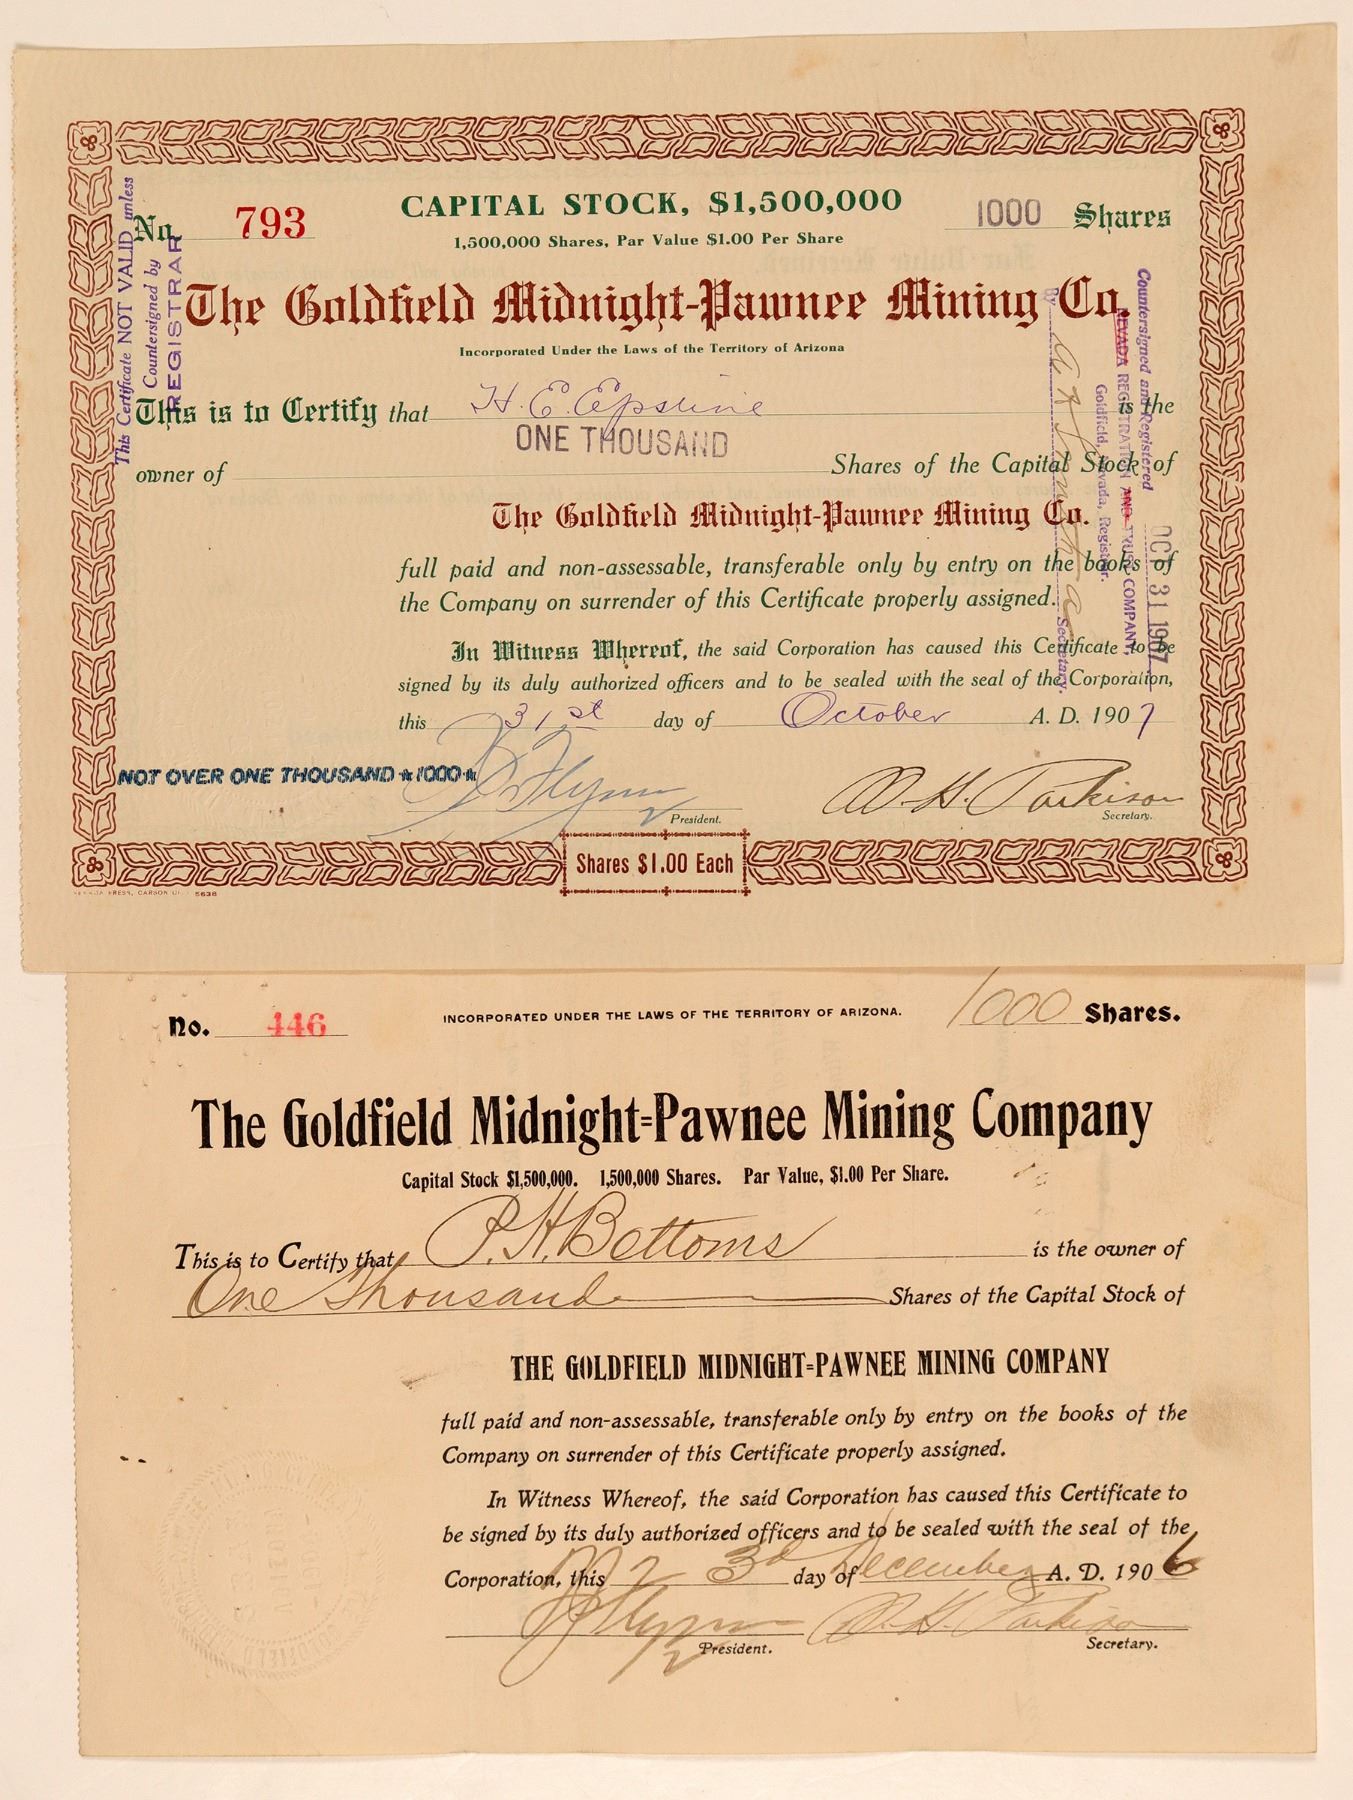 No. 793
CAPITAL STOCK, $1,500,000
1000 Shares
1,500,000 Shares, Par Value $1.00 Per Share
The Goldfield Midnight-Pawnee Mining Co.
Incorporated Under the Laws of the Territory of Arizona
This is to Certify that H. E. Epstine is the
ONE THOUSAND
owner of Shares of the Capital Stock of
The Goldfield Midnight-Pawnee Mining Co.
full paid and non-assessable, transferable only by entry on the books of
the Company on surrender of this Certificate properly assigned.
In Witness Whereof, the said Corporation has caused this Certificate to be
signed by its duly authorized officers and to be sealed with the seal of the Corporation,
this 31st day of October A. D. 1907
NOT OVER ONE THOUSAND ★1000★
Flynn
W. H. Parkison
President.
Secretary.
Shares $1.00 Each
PRESS, CARSON 5638
This Certificate NOT VALID unless
Countersigned by
REGISTRAR
Countersigned and Registered OCT 31 1907
NEVADA REGISTRATION AND TRUST COMPANY,
Goldfield, Nevada, Registrar.
By Secretary.
No. 446
INCORPORATED UNDER THE LAWS OF THE TERRITORY OF ARIZONA.
1000 Shares.
The Goldfield Midnight=Pawnee Mining Company
Capital Stock $1,500,000. 1,500,000 Shares. Par Value, $1.00 Per Share.
This is to Certify that P. H. Bottoms is the owner of
One Thousand Shares of the Capital Stock of
THE GOLDFIELD MIDNIGHT=PAWNEE MINING COMPANY
full paid and non-assessable, transferable only by entry on the books of the
Company on surrender of this Certificate properly assigned.
In Witness Whereof, the said Corporation has caused this Certificate to
be signed by its duly authorized officers and to be sealed with the seal of the
Corporation, this 3d day of December A. D. 1906
Flynn
W. H. Parkison
President.
Secretary.